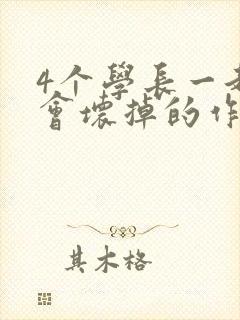 4个學長一起
會壞掉的作
其木格